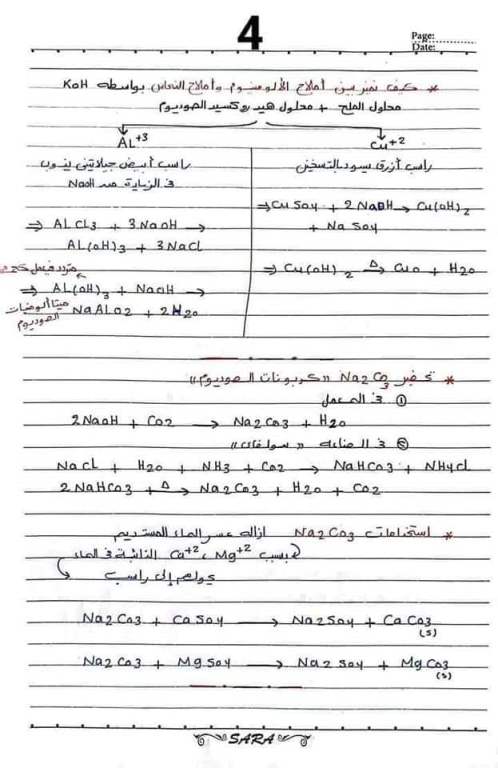 4
Page:
Date:
* كيف نميز بين أملاح الألومنيوم وأملاح النحاس بواسطه KoH
محلول الملح + محلول هيدروكسيد الصوديوم
AL+3
راسب أبيض جيلاتيني يذوب
في الزيادة من NaoH
⇒ ALCL3 + 3NaoH →
AL(oH)3 + 3NaCL
⇒ AL(oH)3 + NaoH →
NaALO2 + 2H2o
ميتا ألومنيات
الصوديوم
Cu+2
راسب أزرق يسود بالتسخين
⇒ CuSo4 + 2NaOH → Cu(oH)2
+ Na So4
⇒ Cu(oH)2 △→ Cuo + H2o
* تحضير Na2Co3 «كربونات الصوديوم»
① في المعمل
2NaoH + Co2 → Na2Co3 + H2o
② في الصناعة «سولفاي»
NaCl + H2o + NH3 + Co2 → NaHCo3 + NH4cl
2NaHCo3 + △→ Na2Co3 + H2o + Co2
* استخدامات Na2Co3 ازاله عسر الماء المستديم
بسبب Ca+2 ، Mg+2 الذائبة في الماء
يحولهم إلى راسب
Na2Co3 + CaSo4 → Na2So4 + CaCo3 (s)
Na2Co3 + MgSo4 → Na2So4 + MgCo3 (s)
SARA